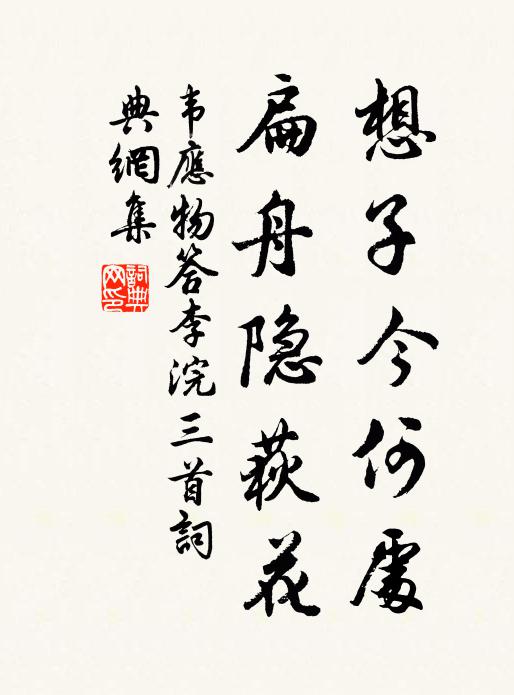 想子今何處
扁舟隐荻花
韦應物答李浣三首詞
典網集
詞典網印